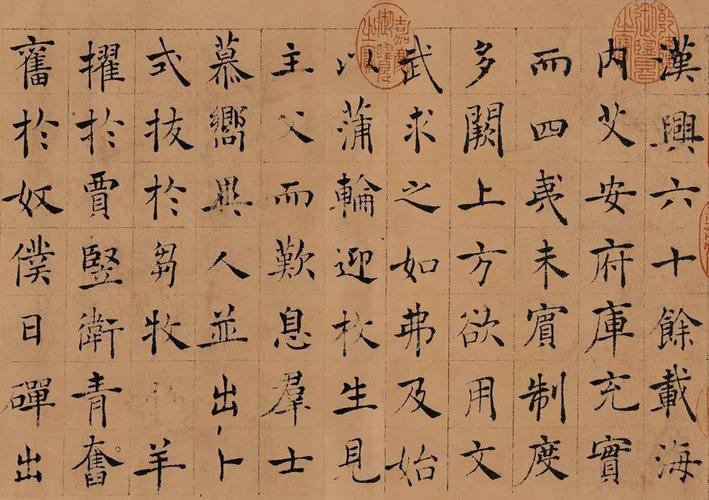 漢興六十餘載海
内艾安府庫充實
而四夷未賓制度
多闕上方欲用文
武求之如弗及始
以蒲輪迎枚生見
主父而歎息羣士
慕嚮異人並出卜
式拔於芻牧羊
擢於賈豎衛青奮
舊於奴僕日磾出
嘉慶御覽之寶